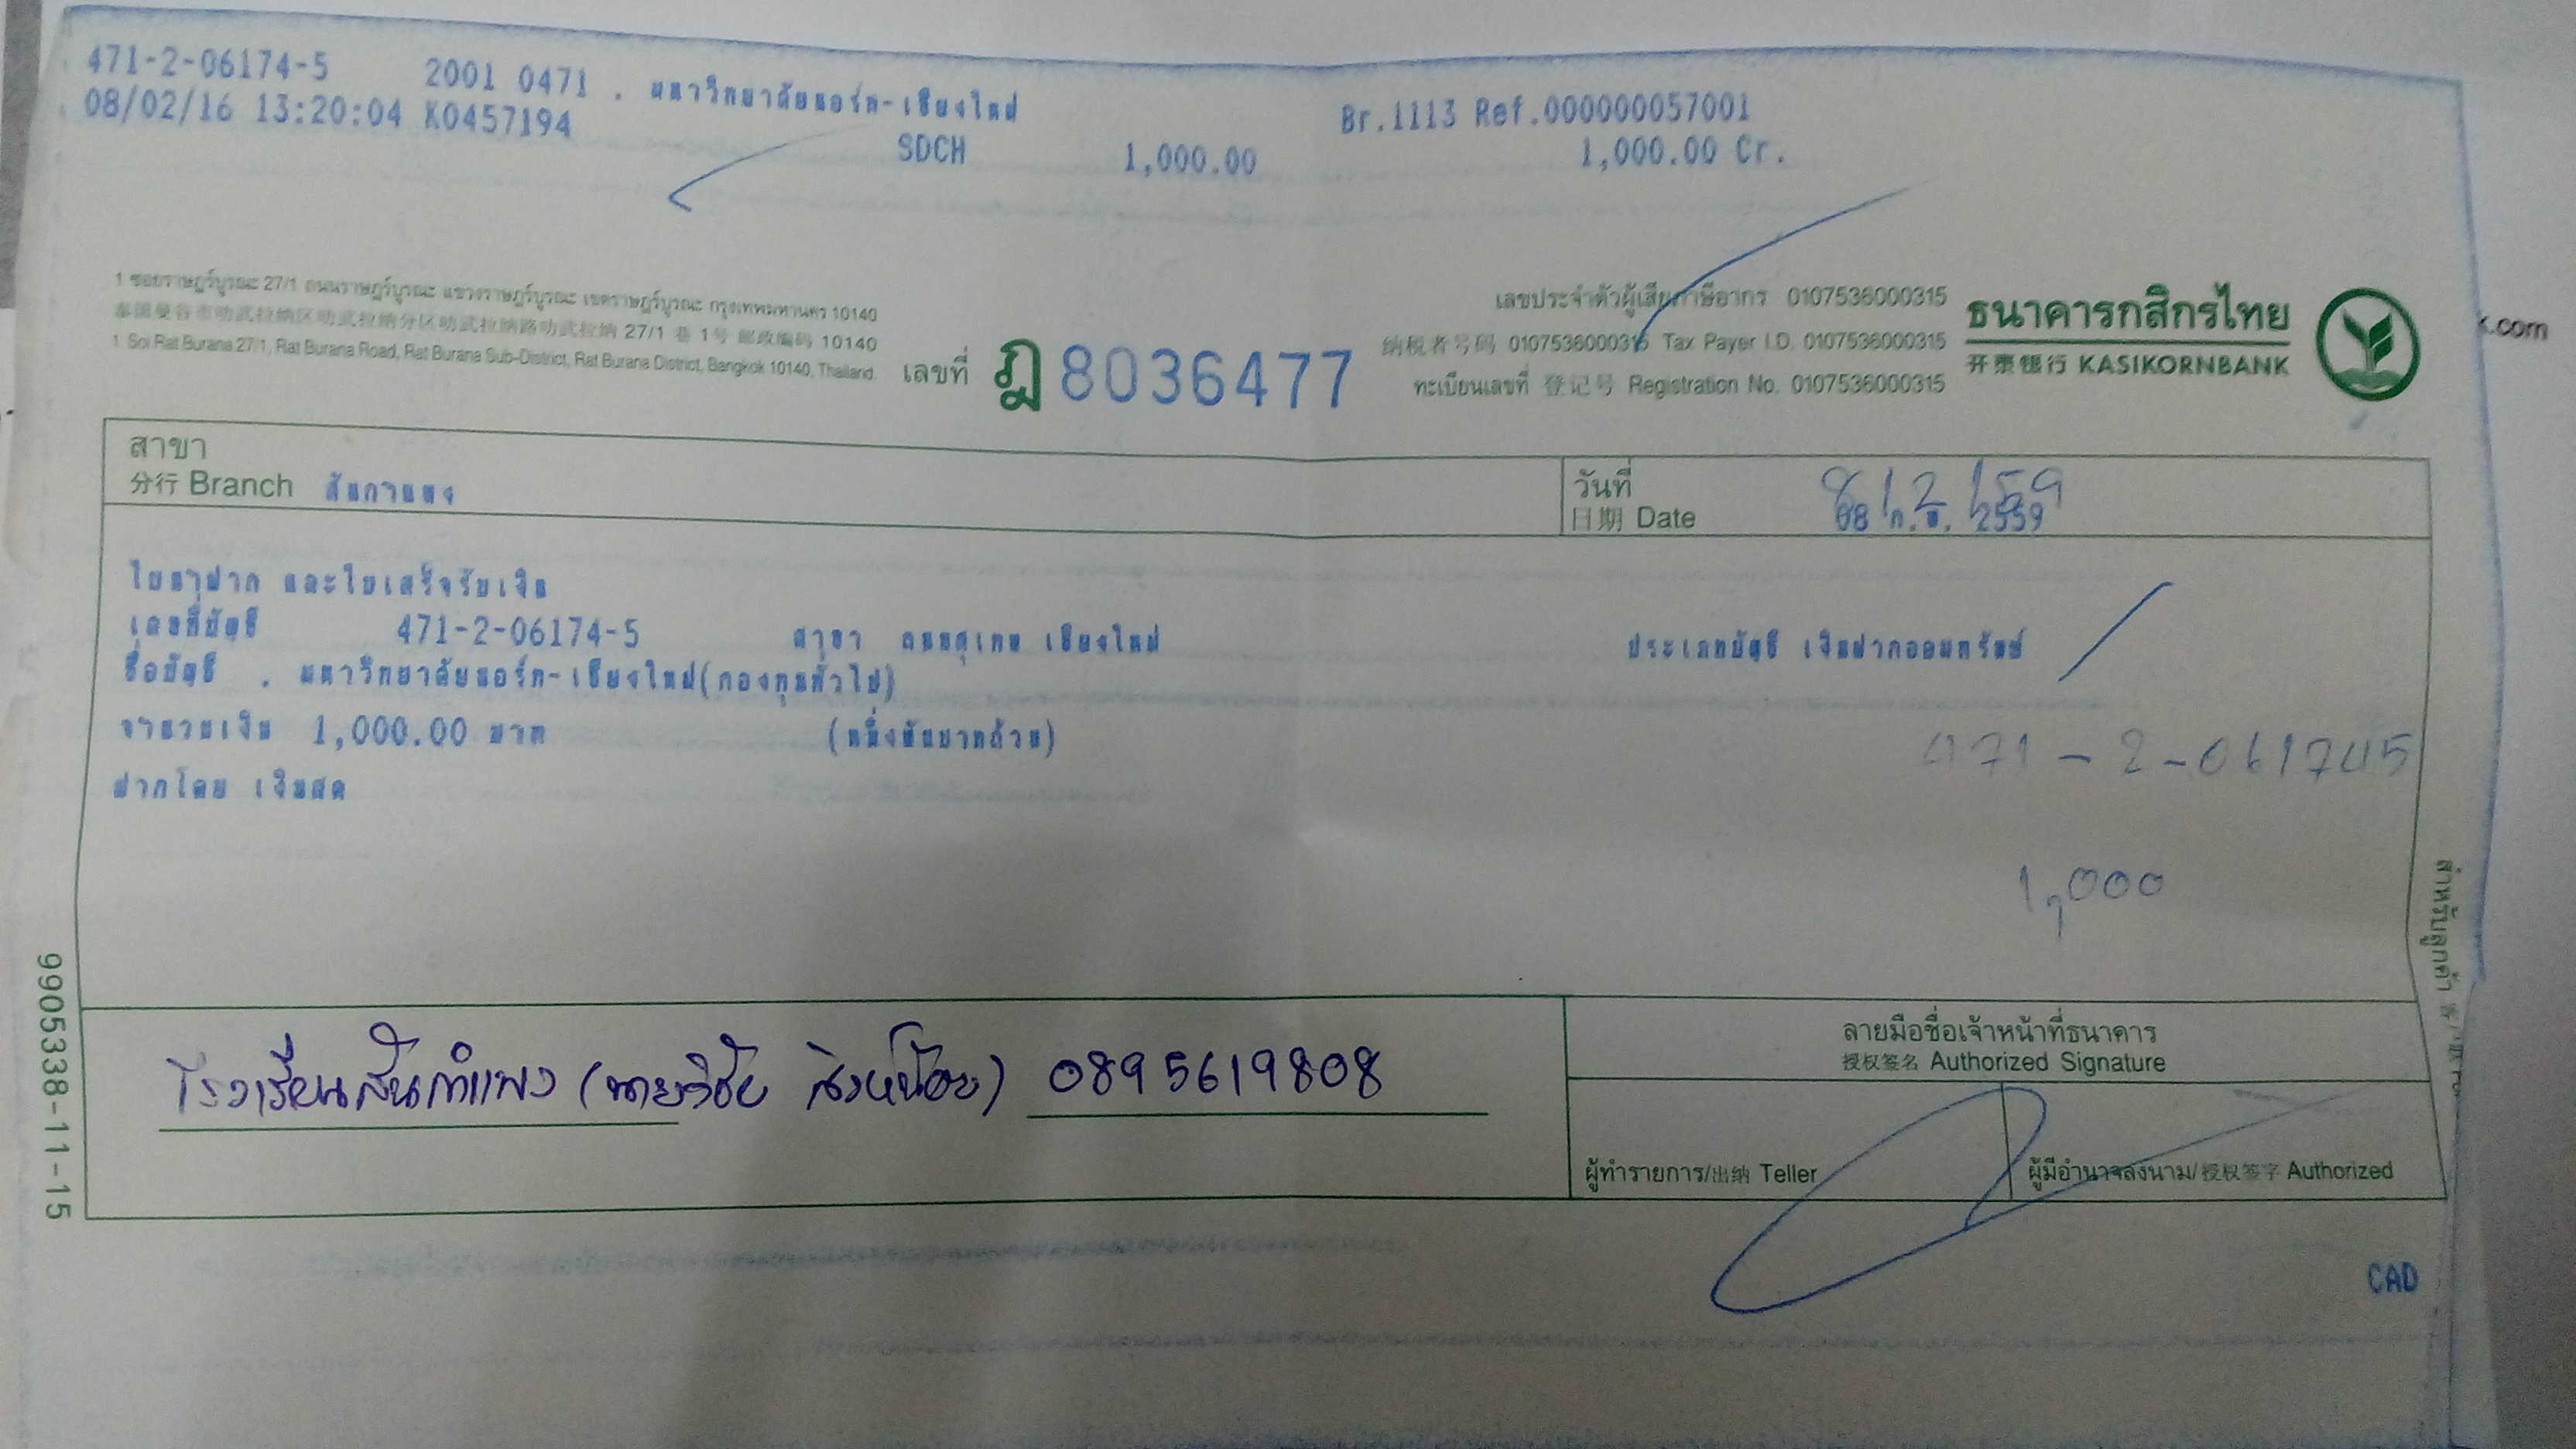 471-2-06174-5 2001 0471 . มหาวิทยาลัยนอร์ท-เชียงใหม่ Br.1113 Ref.000000057001
08/02/16 13:20:04 K0457194 SDCH 1,000.00 1,000.00 Cr.
1 ซอยราษฎร์บูรณะ 27/1 ถนนราษฎร์บูรณะ แขวงราษฎร์บูรณะ เขตราษฎร์บูรณะ กรุงเทพมหานคร 10140
泰国曼谷市叻武拉纳区叻武拉纳分区叻武拉纳路叻武拉纳 27/1 巷 1号 邮政编码 10140
1 Soi Rat Burana 27/1, Rat Burana Road, Rat Burana Sub-District, Rat Burana District, Bangkok 10140, Thailand.
เลขที่ ฎ 8036477
เลขประจำตัวผู้เสียภาษีอากร 0107536000315
纳税者号码 0107536000315 Tax Payer I.D. 0107536000315
ทะเบียนเลขที่ 登记号 Registration No. 0107536000315
ธนาคารกสิกรไทย
开泰银行 KASIKORNBANK
k.com
สาขา
分行 Branch สันกำแพง
วันที่
日期 Date
8/2/59
08 ก.พ. 2559
ใบนำฝาก และใบเสร็จรับเงิน
เลขที่บัญชี 471-2-06174-5 สาขา ถนนสุเทพ เชียงใหม่ ประเภทบัญชี เงินฝากออมทรัพย์
ชื่อบัญชี . มหาวิทยาลัยนอร์ท-เชียงใหม่(กองทุนทั่วไป)
จำนวนเงิน 1,000.00 บาท (หนึ่งพันบาทถ้วน)
471-2-061745
ฝากโดย เงินสด
1,000
สำหรับลูกค้า
9905338-11-15
โรงเรียนสันกำแพง (นายวิชัย สิงห์น้อย) 0895619808
ลายมือชื่อเจ้าหน้าที่ธนาคาร
授权签名 Authorized Signature
ผู้ทำรายการ/出纳 Teller
ผู้มีอำนาจลงนาม/授权签字 Authorized
CAD